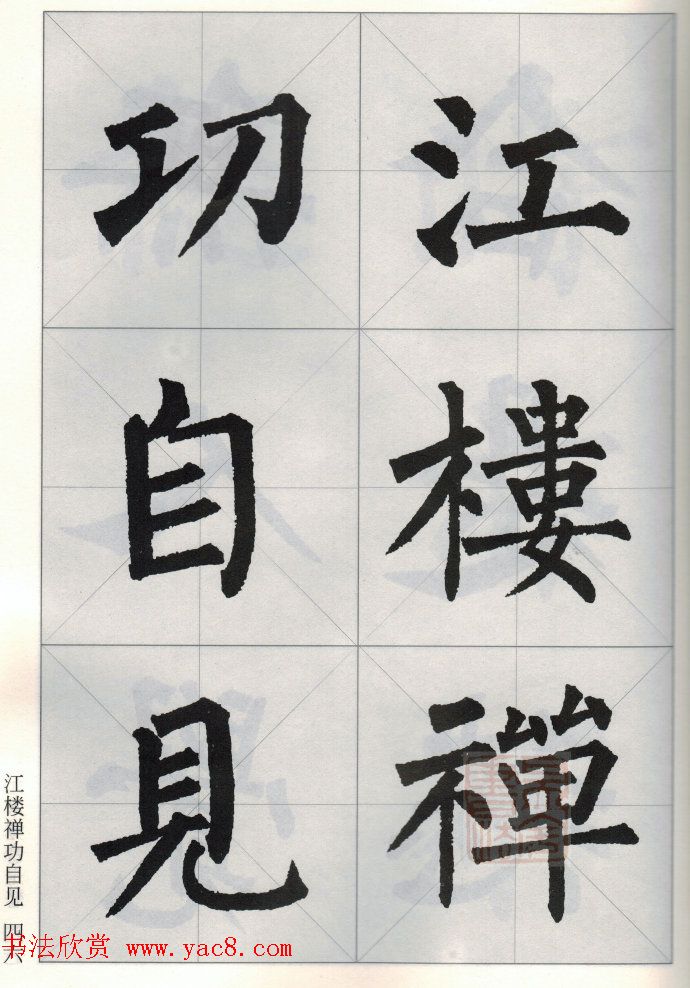 江樓禪
功自見
江楼禅功自见 四六
书法欣赏 www.yac8.com